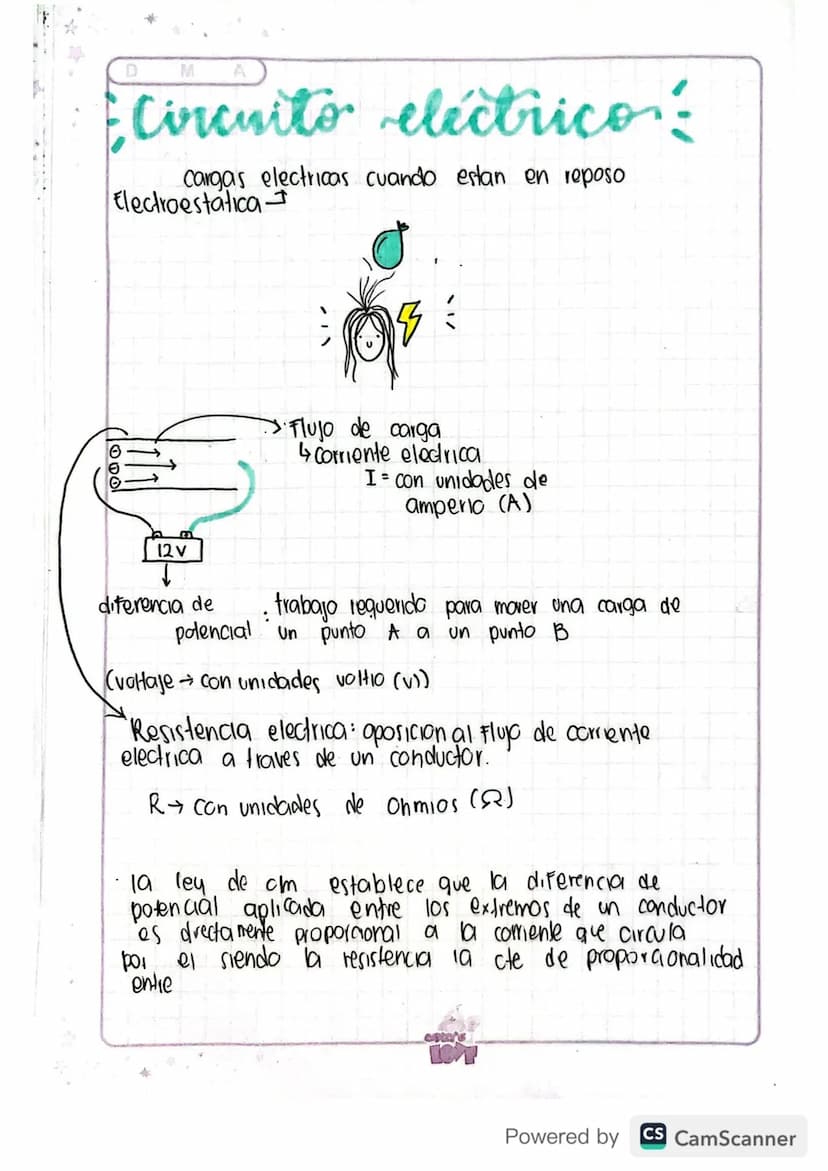 D M A
Circuito eléctrico
cargas electricas cuando estan en reposo
Electroestatica
Flujo de carga
corriente electrica
I = con unidades de
amperio (A)
12V
diferencia de : trabajo requerido para mover una carga de
potencial un punto A a un punto B
(voltaje → con unidades voltio (v))
Resistencia electrica: oposicion al Flujo de corriente
electrica a traves de un conductor.
R → con unidades de Ohmios (Ω)
· la ley de om establece que la diferencia de
potencial aplicada entre los extremos de un conductor
es directamente proporcional a la corriente que circula
por el siendo la resistencia la cte de proporcionalidad
entre
LOVE
Powered by CS CamScanner